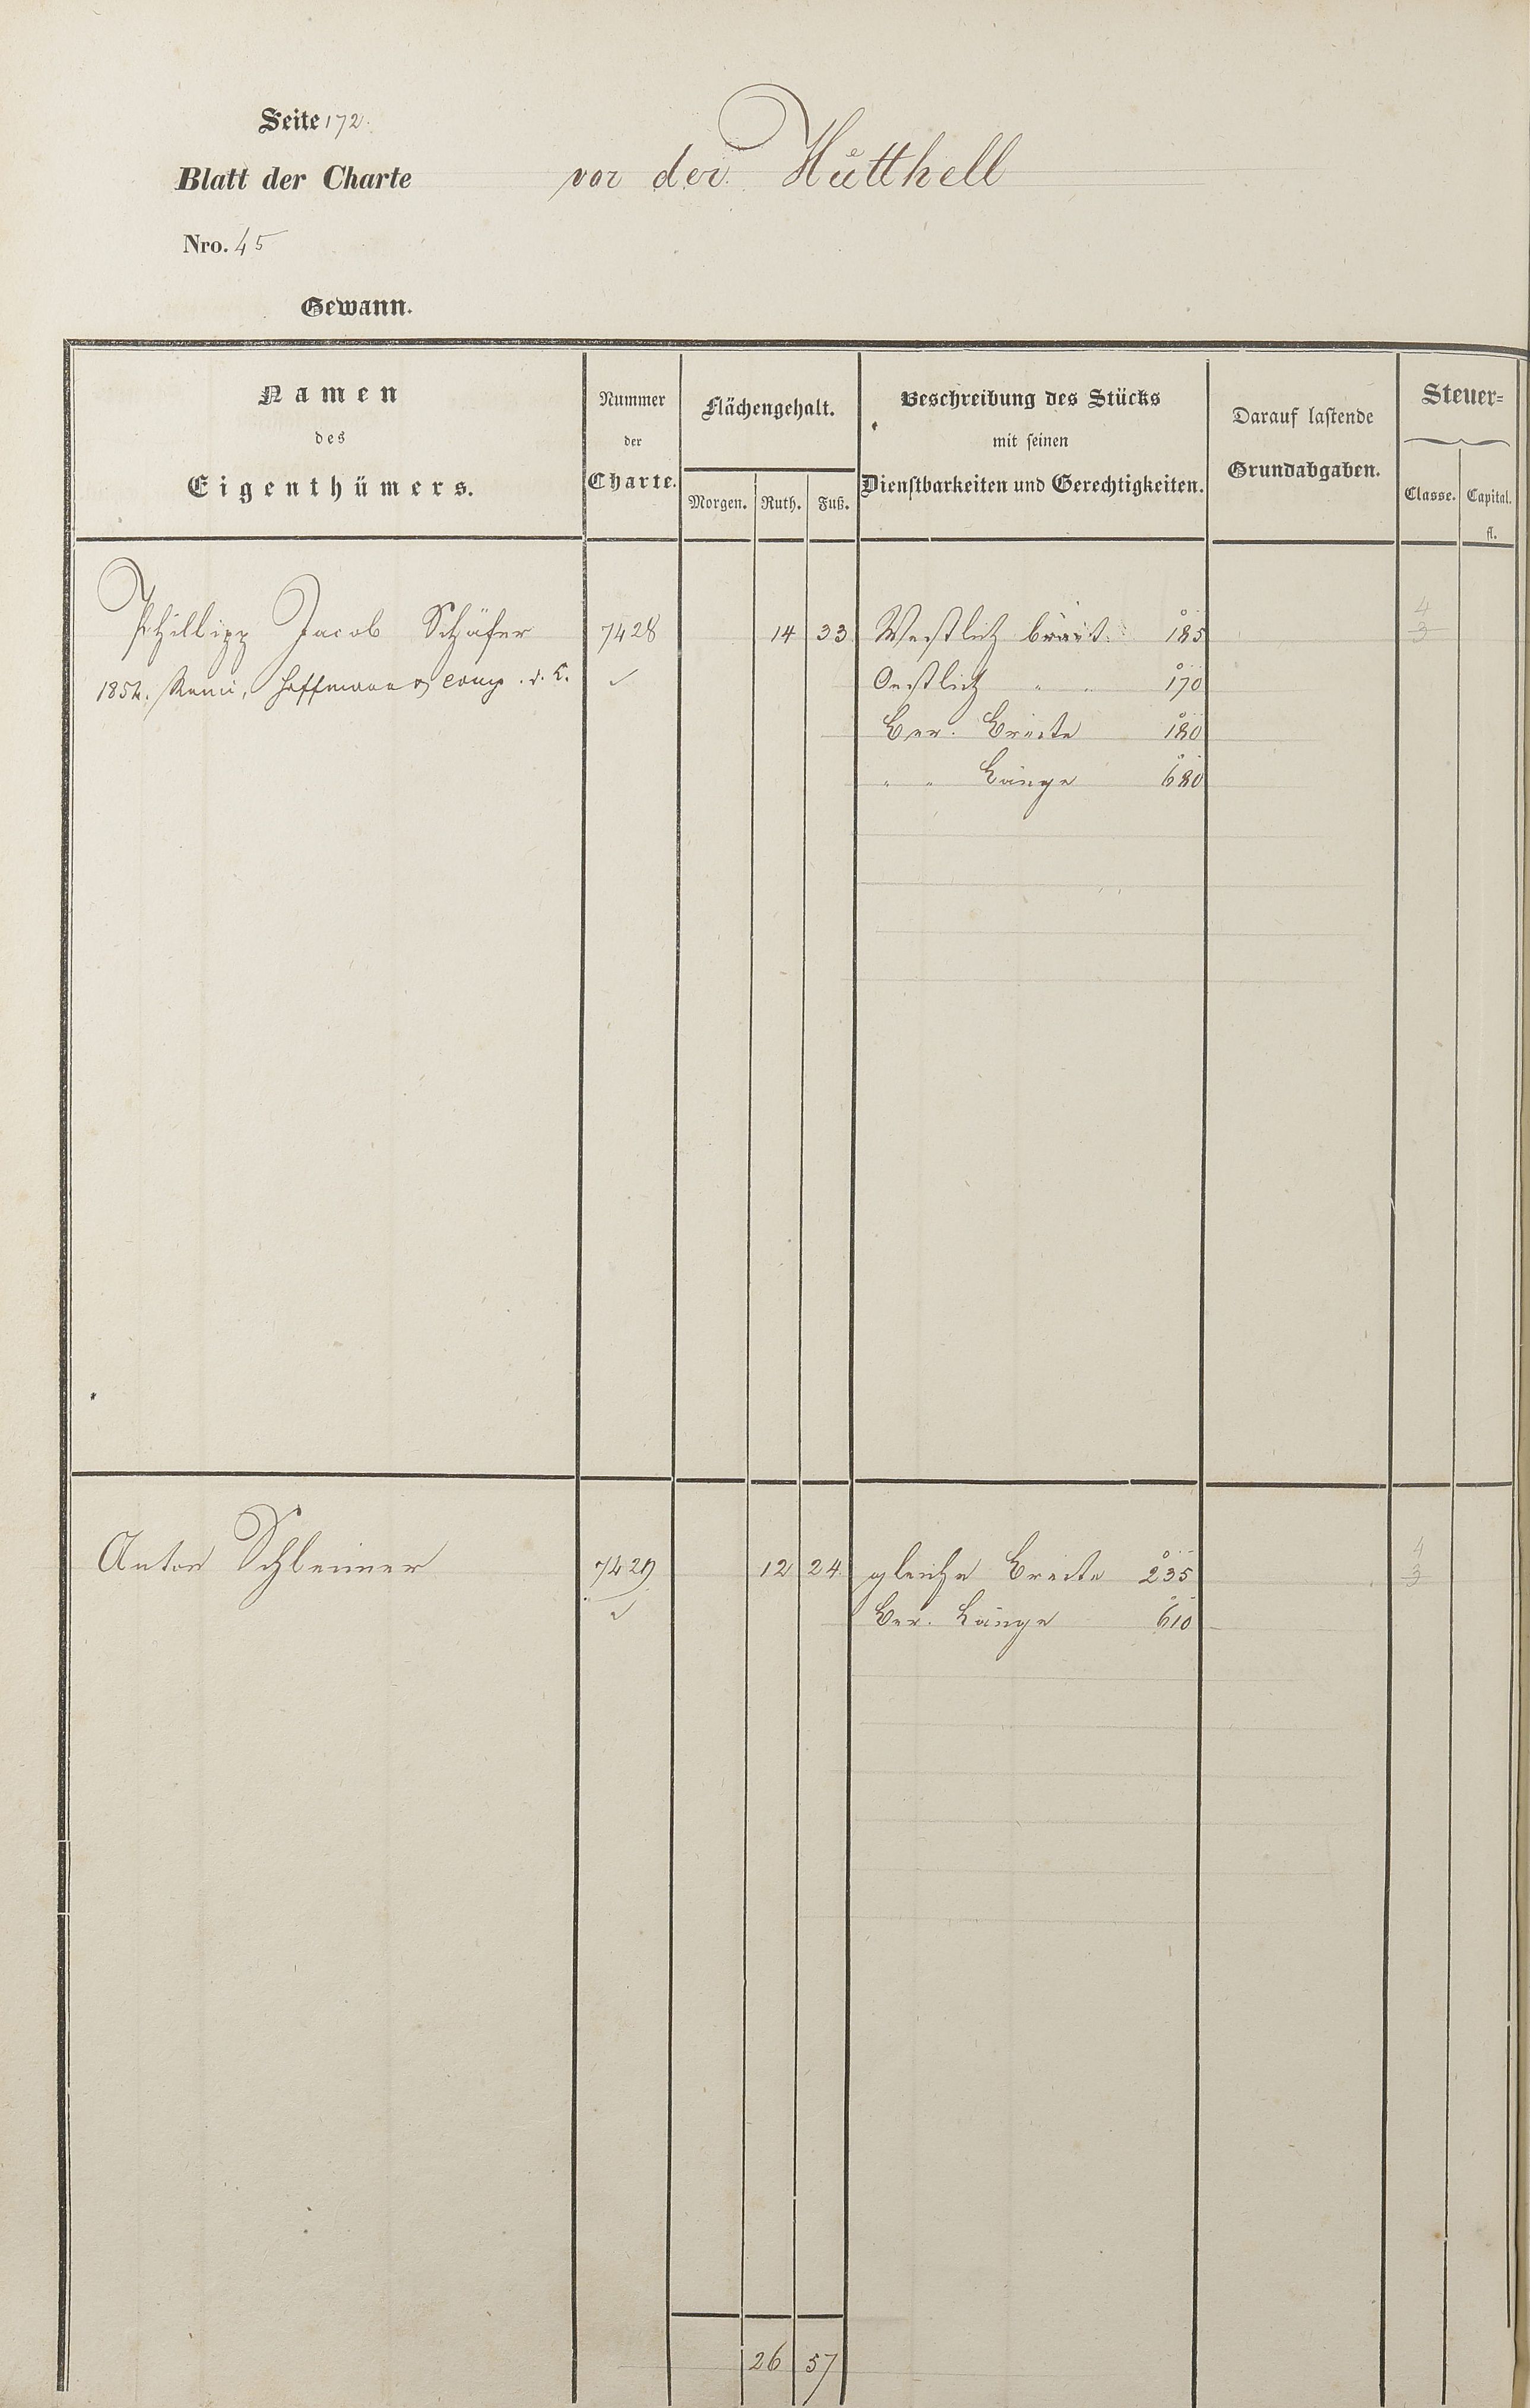 Seite 172.
Blatt der Charte vor der Hütthell
Nro. 45
Gewann.
Namen
des
Eigenthümers.
Nummer
der
Charte.
Flächengehalt.
Morgen. Ruth. Fuß.
Beschreibung des Stücks
mit seinen
Dienstbarkeiten und Gerechtigkeiten.
Darauf lastende
Grundabgaben.
Steuer=
Classe. Capital.
fl.
Phillipp Jacob Schäfer 7428 14 33 Westlich breit 185 4
3
1852. Hoffmann & Comp. ✓ Oestlich " " 170
Ber. Breite 180
" " Länge 680
Anton Schleimer 7429 12 24 gleiche Breite 235 4
3
✓ Ber. Länge 610
26 57